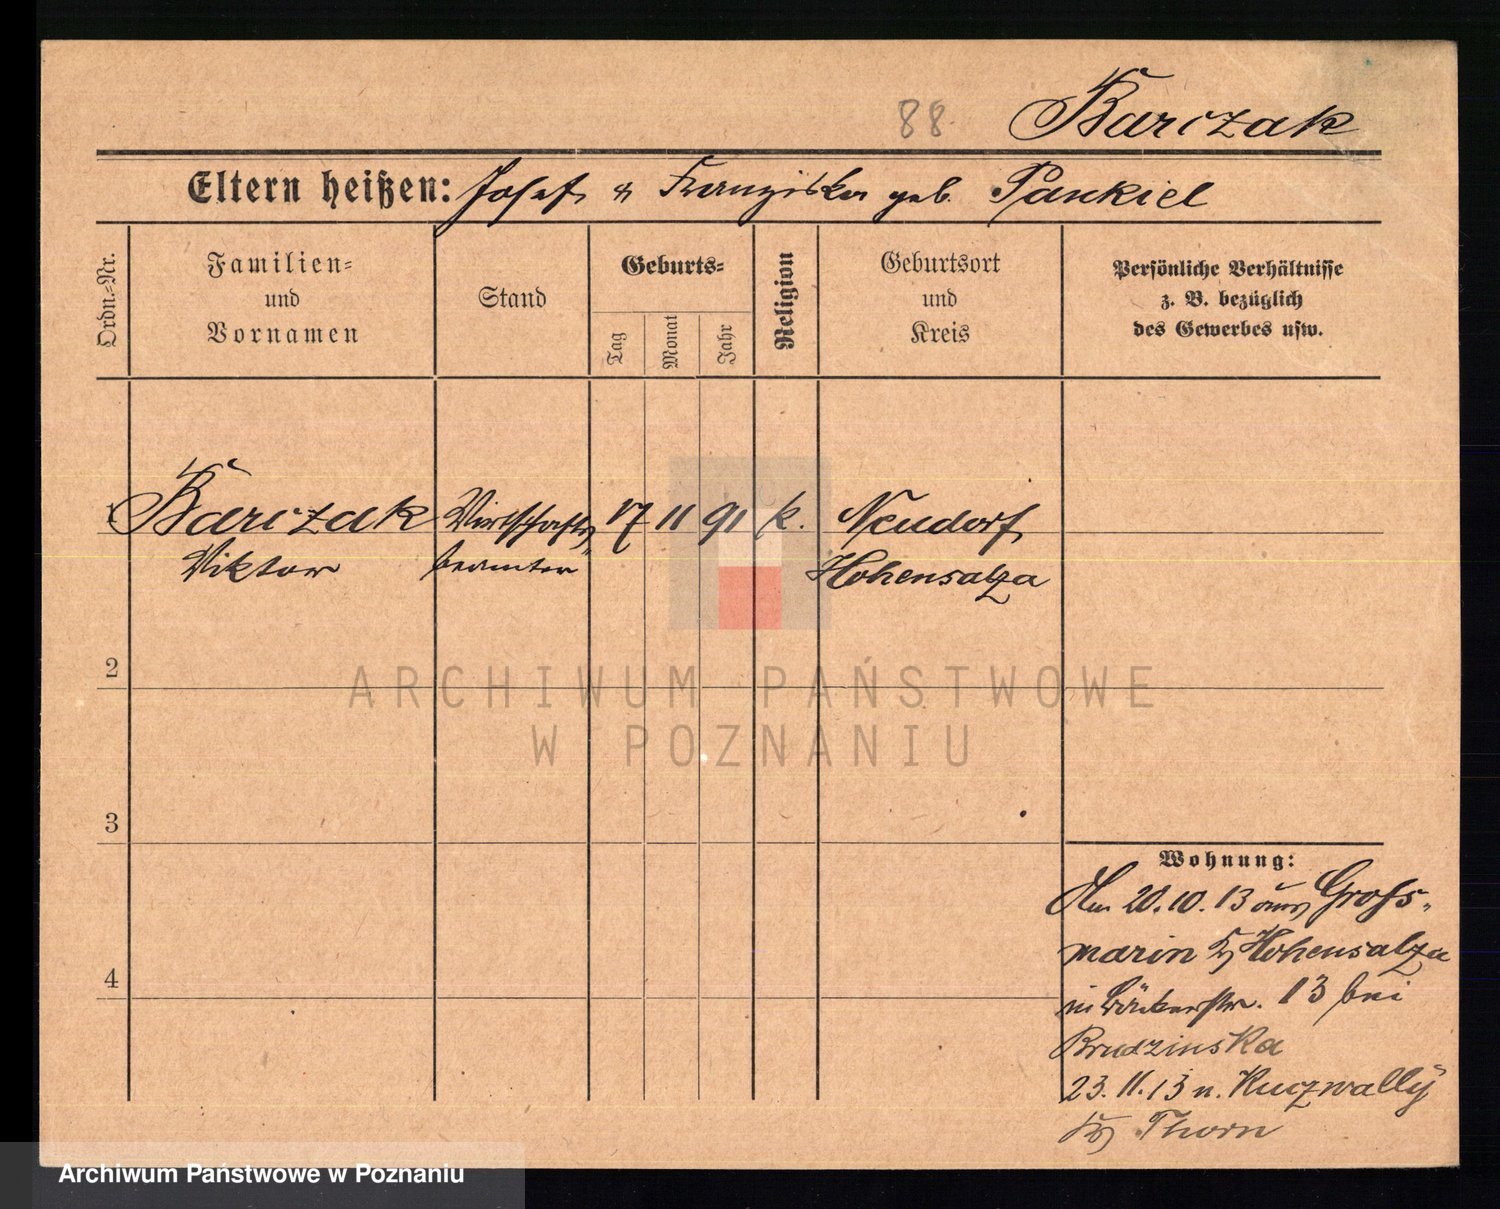 88. Barczak
Eltern heißen: Josef u Franziska geb. Pankiel
Ordn.=Nr.
Familien=
und
Vornamen
Stand
Geburts=
Tag
Monat
Jahr
Religion
Geburtsort
und
Kreis
Persönliche Verhältnisse
z. B. bezüglich
des Gewerbes usw.
1 Barczak Wirtschafts= 17 11 91 k. Neudorf
Viktor beamter Hohensalza
2
ARCHIWUM PAŃSTWOWE
W POZNANIU
3
Wohnung:
Am 20.10.13 aus Gross-
marin Kr Hohensalza
in Bäckerstr. 13 bei
Brudzinska
4
23.11.13 n. Kuczwally
Kr Thorn
Archiwum Państwowe w Poznaniu